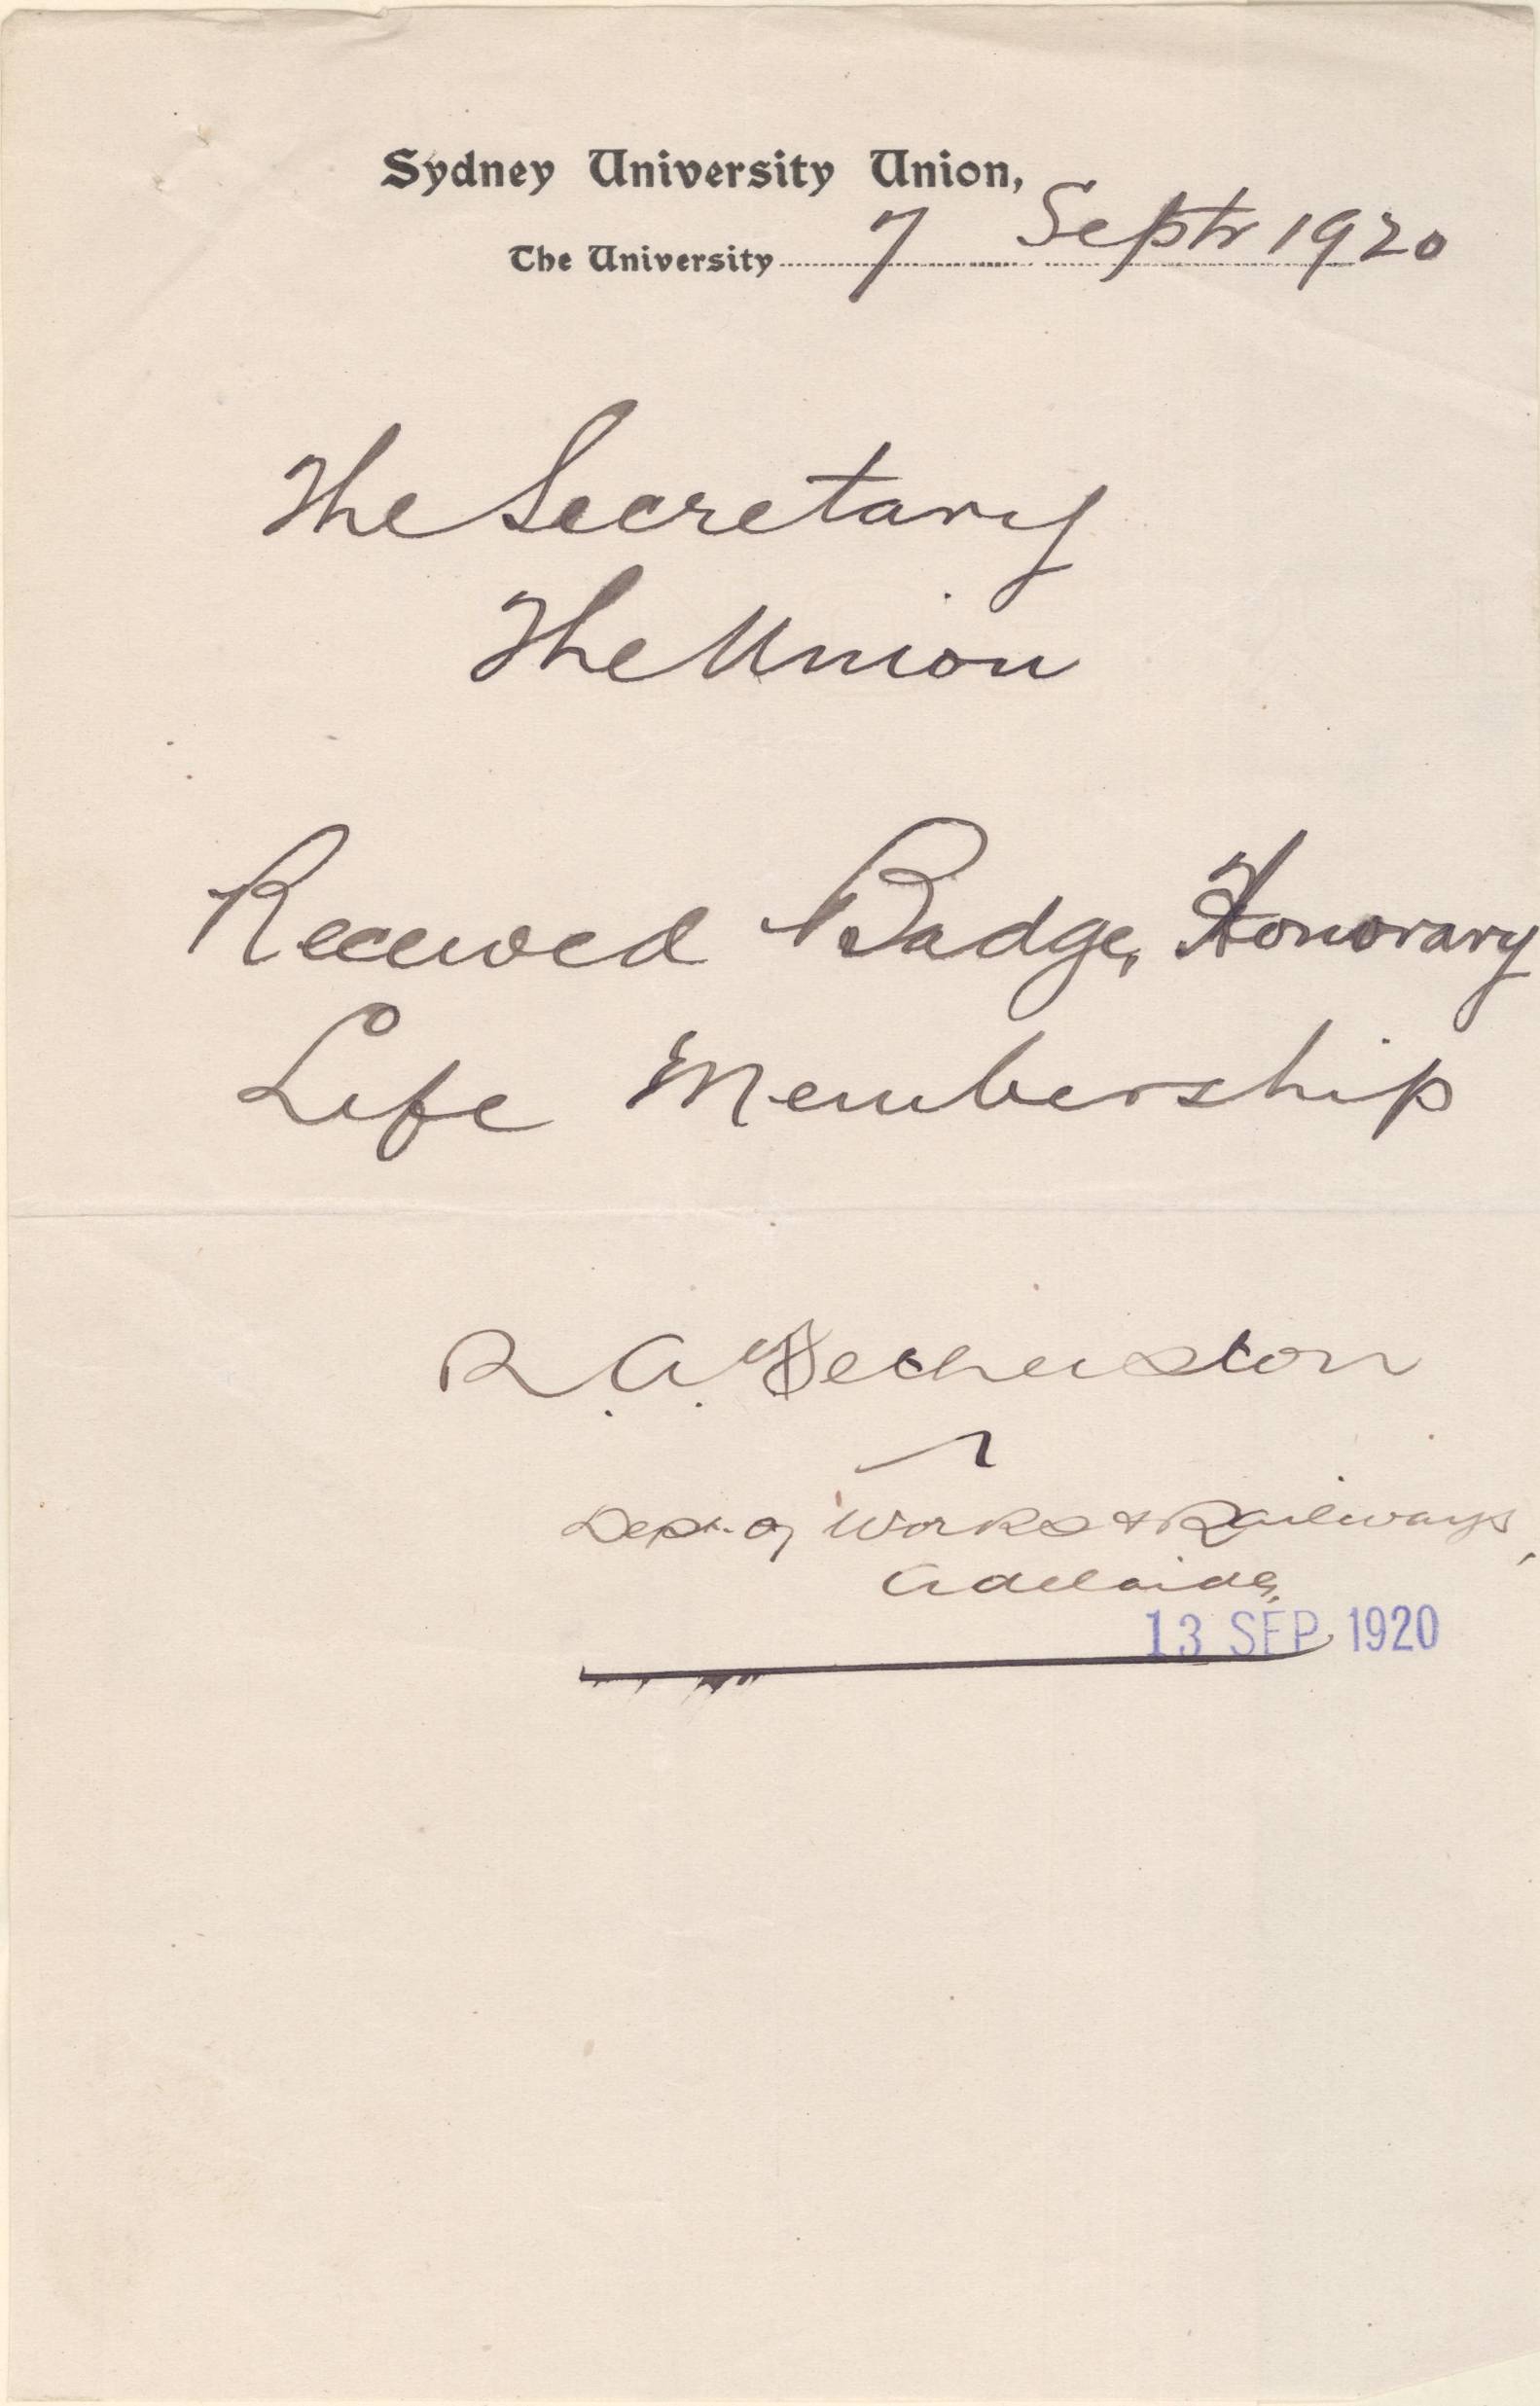 Sydney University Union,
The University 7 Septr 1920
The Secretary
The Union
Received Badge, Honorary
Life Membership
R. A.
Dept. of Works & Railways,
Adelaide,
13 SEP 1920